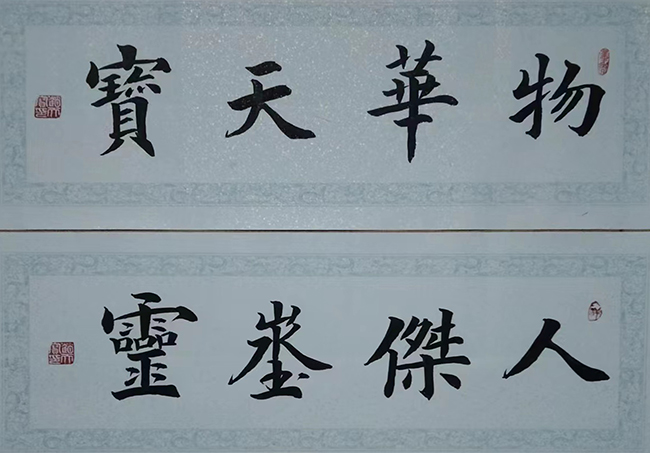 物華天寶
人傑埊靈